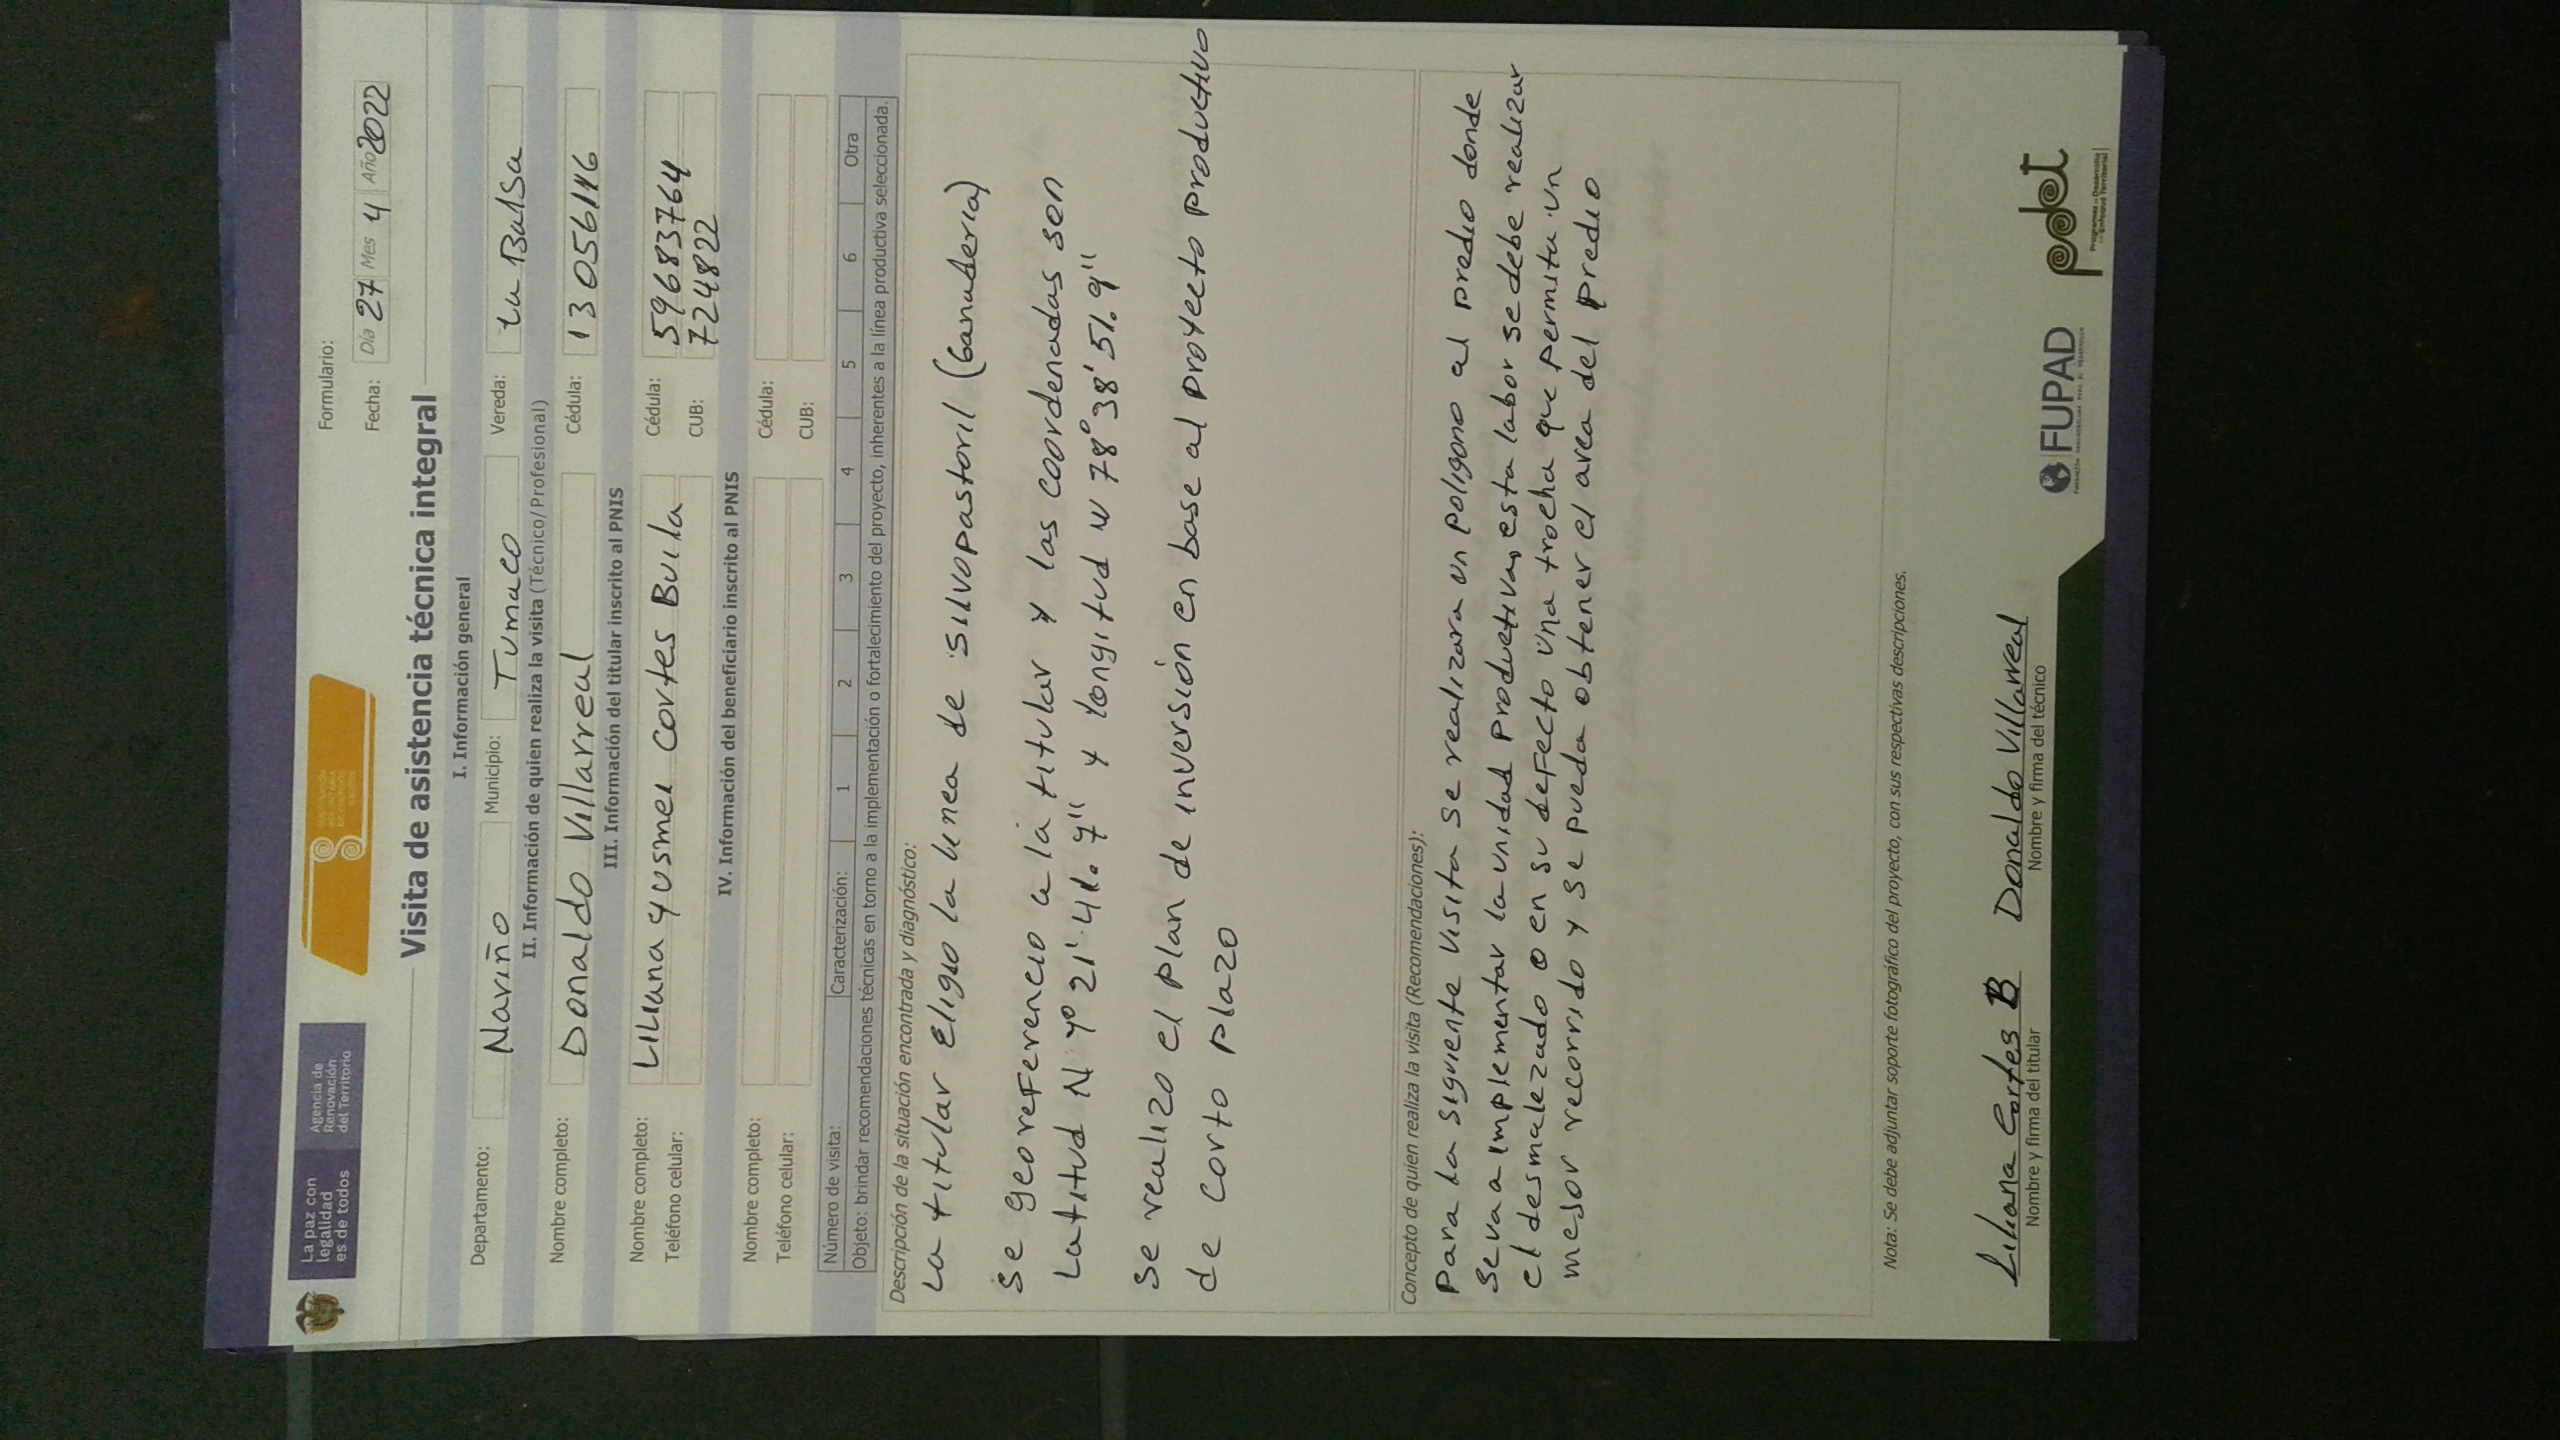 La paz con
legalidad
es de todos
Agencia de
Renovación
del Territorio
Formulario:
Fecha: Día 27 Mes 4 Año 2022
Visita de asistencia técnica integral
I. Información general
Departamento: Nariño Municipio: Tumaco Vereda: La Balsa
II. Información de quien realiza la visita (Técnico/Profesional)
Nombre completo: Donaldo Villarreal Cédula:
III. Información del titular inscrito al PNIS
Nombre completo: Liliana Yusmei Cortes Buila Cédula: 596883764
Teléfono celular: CUB: 724822
IV. Información del beneficiario inscrito al PNIS
Nombre completo: Cédula:
Teléfono celular: CUB:
Número de visita: Caracterización: 1 2 3 4 5 6 Otra
Objeto: brindar recomendaciones técnicas en torno a la implementación o fortalecimiento del proyecto, inherentes a la línea productiva seleccionada.
Descripción de la situación encontrada y diagnóstico:
La titular eligio la linea de silvopastoril (Ganaderia)
Se georeferencio a la titular y las coordenadas son
Latitud N 21' y longitud W 78° 38' 51.9"
Se realizo el plan de inversión en base al proyecto productivo
de corto plazo
Concepto de quien realiza la visita (Recomendaciones):
Para la siguiente visita se realizara un poligono al predio donde
se va a implementar la unidad productiva, esta labor se debe realizar
el desmalezado o en su defecto una trocha que permita un
mejor recorrido y se pueda obtener el area del predio
Nota: Se debe adjuntar soporte fotográfico del proyecto, con sus respectivas descripciones.
Liliana Cortes B Donaldo Villarreal
Nombre y firma del titular Nombre y firma del técnico
FUPAD
pdet